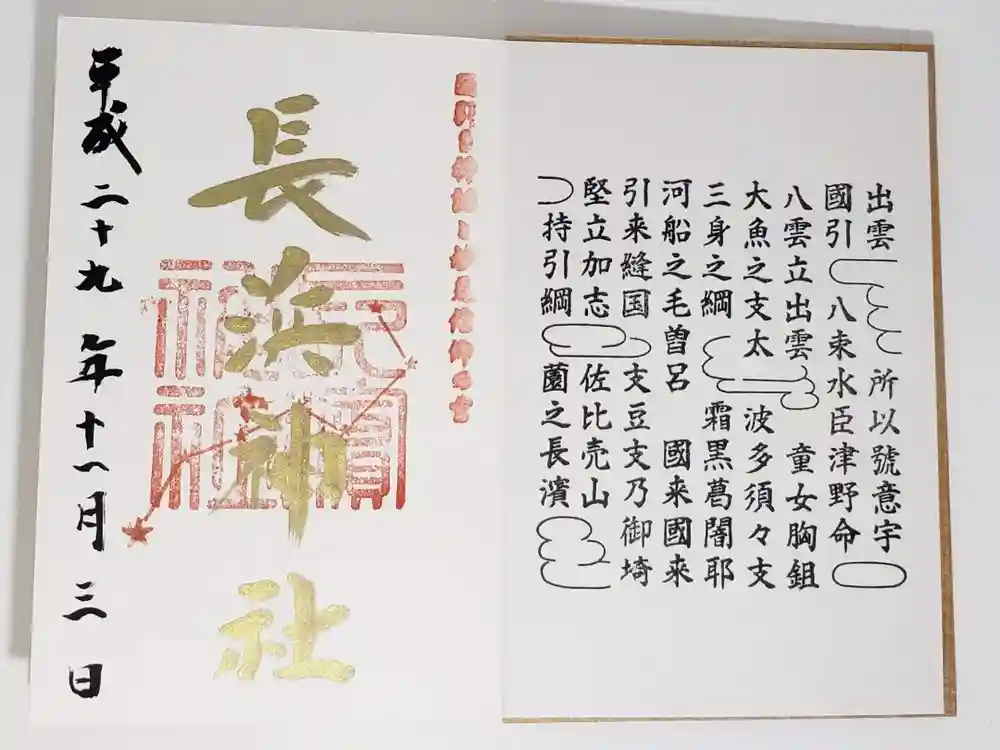 出雲 所以號意宇
國引 八束水臣津野命
八雲立出雲 童女胸鉏
大魚之支太 波多須々支
三身之綱 霜黒葛闇耶
河船之毛曽呂 國来國来
引来縫国 支豆支乃御埼
堅立加志 佐比売山
持引綱 薗之長濱
長浜神社
平成二十九年十一月三日